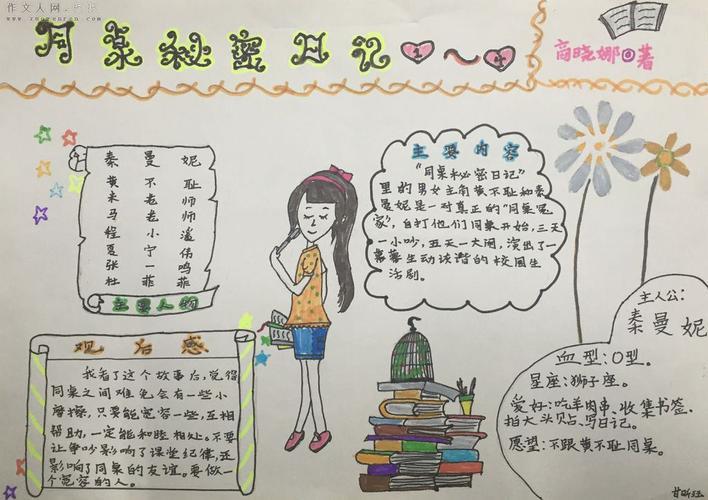 作文人网
www.zuowenren.com
同桌秘密日记 1～4
商晓娜◎著
秦曼妮
黄不耻
未老师
马老师
程小潘
夏宁伟
张一鸣
杜菲菲
主要人物
主要内容
"同桌秘密日记"
里的男女主角黄不耻和秦
曼妮是一对真正的"同桌冤
家",自打他们同桌开始,三天
一小吵,五天一大闹,演出了一
幕幕生动诙谐的校园生
活剧。
主人公:
秦曼妮
血型:O型。
星座:狮子座。
爱好:吃羊肉串、收集书签、
拍大头贴、写日记。
愿望:不跟黄不耻同桌。
观后感
我看了这个故事后,觉得
同桌之间难免会有一些小
摩擦,只要能宽容一些,互相
帮助,一定能和睦相处。不要
让争吵影响了课堂纪律,还
影响了同桌的友谊。要做一
个宽容的人。